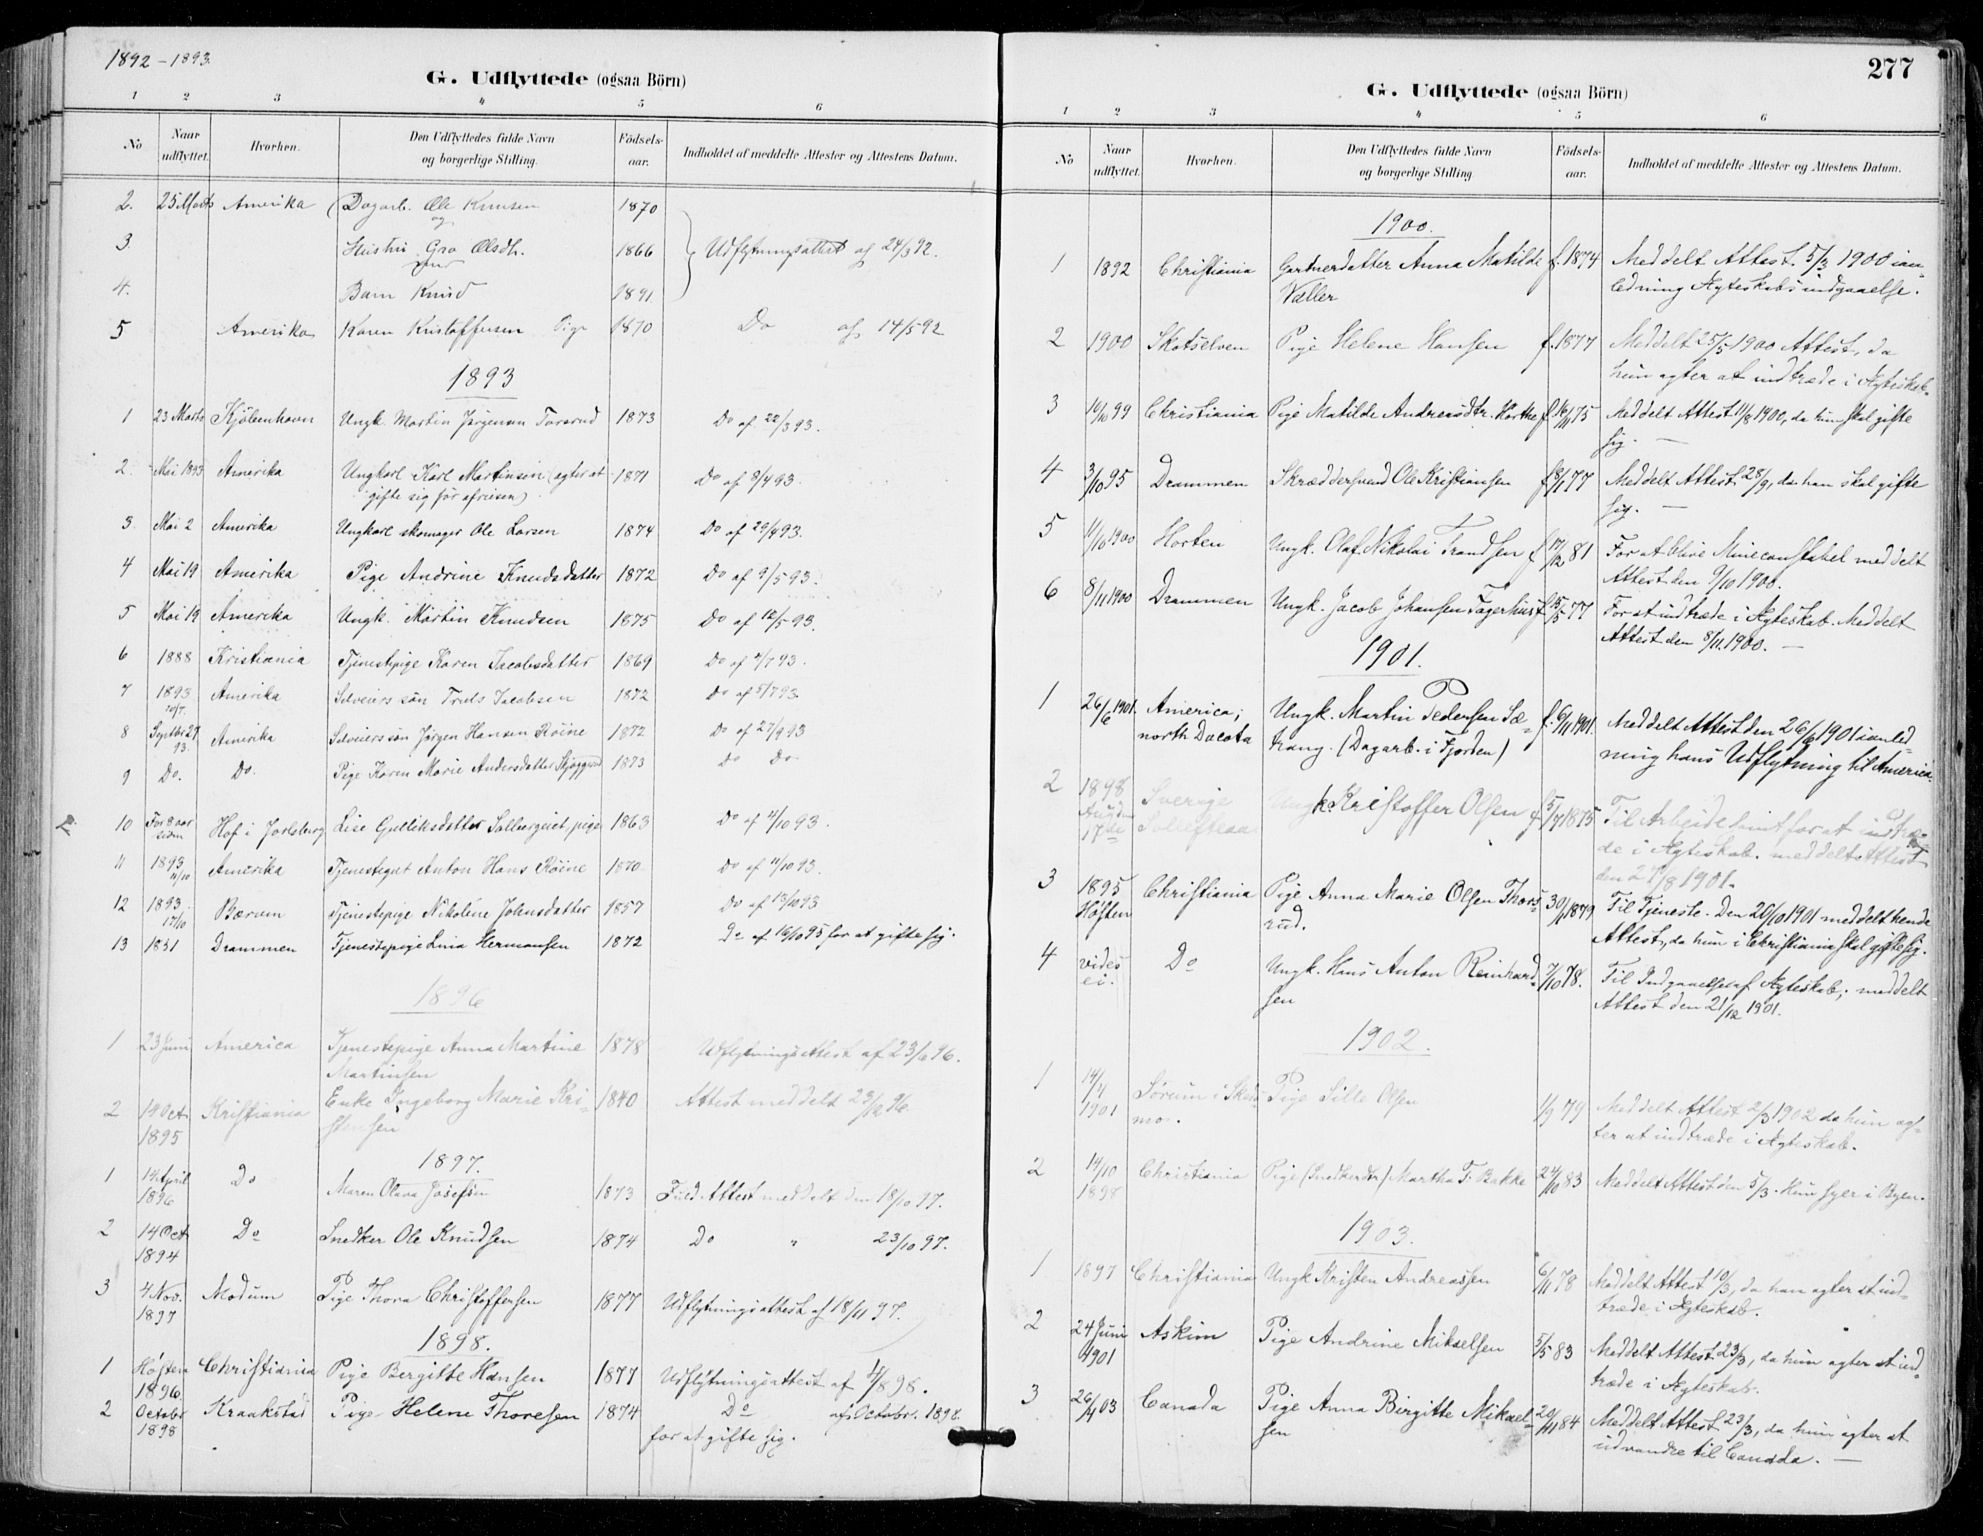 1892 - 1893.
G. Udflyttede (ogsaa Börn)
1 2 3 4 5 6
No Naar udflyttet. Hvorhen. Den Udflyttedes fulde Navn og borgerlige Stilling. Födsels-aar. Indholdet af meddelte Attester og Attestens Datum.
2. 25 Marts Amerika Dagarb. Ole Knudsen 1870
og
3. Hustru Gro Olsdtr. 1866 Udflytningsattest af 24/3 92.
4. Barn Knud 1891
5 Amerika Karen Kristoffersen Pige 1870 Do af 14/5 92
1893
1 23 Marts Kjöbenhavn Ungk. Martin Jörgensen 1873 Do af 22/3 93.
2. Mai 1893 Amerika Ungkarl Karl Martinsen (agter at 1871 Do af 8/4 93.
gifte sig för afreisen)
3 Mai 2 Amerika Ungkarl skomager Ole Larsen 1874 Do af 29/4 93.
4 Mai 19 Amerika Pige Andrine Knudsdatter 1872 Do af 9/5 93.
5 Mai 19 Amerika Ungk. Martin Knudsen 1875 Do af 12/5 93.
6 1888 Kristiania Tjenestepige Karen Jacobsdatter 1869 Do af /7 93.
7 1893 Amerika Selveiers sön Truls Jacobsen 1872 Do af 5/7 93.
8 Septbr 27 93. Amerika Selveiers sön Jörgen Hansen Röine 1872 Do af 27/9 93
9 Do. Do. Pige Karen Marie Andersdatter 1873 Do Do
10 For 8 aar siden Hof i Jarlsberg Lise Gulliksdatter Solbergeiet pige 1863 Do af 4/10 93.
11 1893 11/10 Amerika Tjenestegut Anton Hans Röine 1870 Do af 11/10 93.
12 1893 17/10 Bærum Tjenestepige Nikoline Johnsdatter 1857 Do af 13/10 93
13 1851 Drammen Tjenestepige Lina Hermansen 1872 Do af 16/10 95 for at gifte sig.
1896
1 23 Juni America Tjenestepige Anna Martine 1878 Udflytningsattest af 23/6 96.
Martinsen
2 14 Oct 1895 Kristiania Enke Ingeborg Marie Kri- 1840 Attest meddelt 29/12 96
stensen
1897.
1 14 April 1896 Do Maren Olava Josefsen 1873 Fuld. Attest meddelt den 18/10 97.
2 14 Oct 1894 Do Snedker Ole Knudsen 1874 Do " 23/10 97.
3 4 Nov. 1897 Modum Pige Thora Christoffersen 1877 Udflytningsattest af 18/11 97.
1898.
1 Høsten 1896 Christiania Pige Bergitte Hansen 1877 Udflytningsattest af 4/8 98.
2 October 1898 Kraakstad Pige Helene Thoresen 1874 Do af October 1898
for at gifte sig.
277
G. Udflyttede (ogsaa Börn)
1 2 3 4 5 6
No Naar udflyttet. Hvorhen. Den Udflyttedes fulde Navn og borgerlige Stilling. Födsels-aar. Indholdet af meddelte Attester og Attestens Datum.
1900.
1 1892 Christiania Gartnerdatter Anna Matilde f. 1874 Meddelt Attest 5/3 1900 i an-
Væller ledning Ægteskabsindgaaelse.
2 1900 Skotselven Pige Helene Hansen f. 1877 Meddelt 25/5 1900 Attest, da
hun agter at indtræde i Ægteskab.
3 14/10 99 Christiania Pige Matilde Andreasdtr. Horthe f. 16/11 75 Meddelt Attest 11/8 1900, da hun skal gifte
sig. —
4 3/10 95 Drammen Skræddersvend Ole Kristiansen f. 8/1 77 Meddelt Attest 28/9, da han skal gifte
sig. —
5 11/10 1900 Horten Ungk. Olaf Nikolai Frandsen f. 17/12 81 For at blive Mineconstabel meddelt
Attest den 9/10 1900.
6 8/11 1900 Drammen Ungk. Jacob Johansen Fagerhus f. 15/5 77 For at indtræde i Ægteskab. Meddelt
Attest den 8/11. 1900. —
1901.
1 26/6 1901. America; Ungk. Martin Pedersen Sæ- f. 6/11 1901. Meddelt Attest den 26/6 1901 i anled-
north Dacota trang. (Dagarb. i Fjorden) ning hans Udflytning til America.
2 1898 Sverige Ungk. Kristoffer Olsen f. 5/7 1875 Til Arbeide samt for at indtræ-
August 17de Sollefteaa de i Ægteskab. meddelt Attest
den 27/8 1901.
3 1895 Christiania Pige Anna Marie Olsen Thors- 30/1 1879 Til Tjeneste. Den 26/10 1901 meddelt hende
Høsten rud. Attest, da hun i Christiania skal gifte sig.
4 vides Do Ungk. Hans Anton Reinhard- 7/10 78. Til Indgaaelse af Ægteskab; meddelt
ei. sen Attest den 21/12 1901.
1902.
1 14/4 1901 Sørum i Skeds- Pige Sille Olsen 1/9 79 Meddelt Attest 2/3 1902 da hun ag-
mo. ter at indtræde i Ægteskab.
2 14/10 1898 Christiania Pige (Snedkerdtr) Martha F. Bakke 24/10 83 Meddelt Attest den 5/3. Hun syer i Byen.
1903.
1 1897 Christiania Ungk Kristen Andreassen 6/11 78 Meddelt Attest 10/3, da han agter at ind-
træde i Ægteskab.
2 24 Juni 1901 Askim Pige Andrine Mikaelsen 5/5 83 Meddelt Attest 23/3, da hun agter at ind-
træde i Ægteskab.
3 26/4 03 Canada Pige Anna Birgitte Mikael- 20/11 84 Meddelt Attest 23/3, da hun agter at
sen udvandre til Canada. —